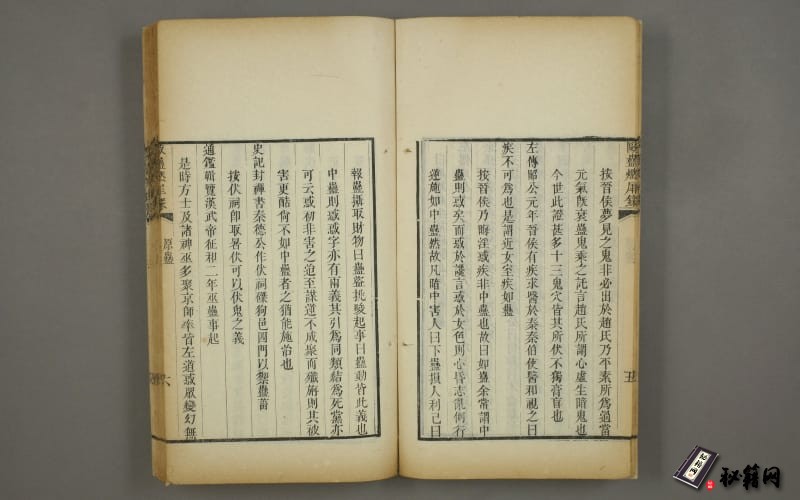 按晉侯夢見之鬼非必出於趙氏乃平素所為適當
元氣旣衰蠱鬼乘之託言趙氏所謂心虛生暗鬼也
今世此證甚多十三鬼穴皆其所伏不獨膏肓也
左傳昭公元年晉侯有疾求醫於秦秦伯使醫和視之曰
疾不可為也是謂近女室疾如蠱
按晉侯乃晦淫惑疾非中蠱也故曰如蠱余嘗謂中
蠱則惑矣而惑於讒言惑於女色則心昏志亂倒行
逆施如中蠱然故凡暗中害人曰下蠱損人利己曰
五
報蠱攝取財物曰蠱盜挑唆起事曰蠱動皆此義也
中蠱則惑惑字亦有兩義其引為同類結為死黨亦
可云惑初非害之迨至謀逆不成聚而殲旃則其被
害更酷尙不如中蠱者之猶能施治也
史記封禪書秦德公作伏祠磔狗邑四門以禦蠱菑
按伏祠卽取暑伏可以伏鬼之義
通鑑輯覽漢武帝征和二年巫蠱事起
是時方士及諸神巫多聚京師率皆左道惑眾變幻無
原蠱
六
秘籍网
秘籍网